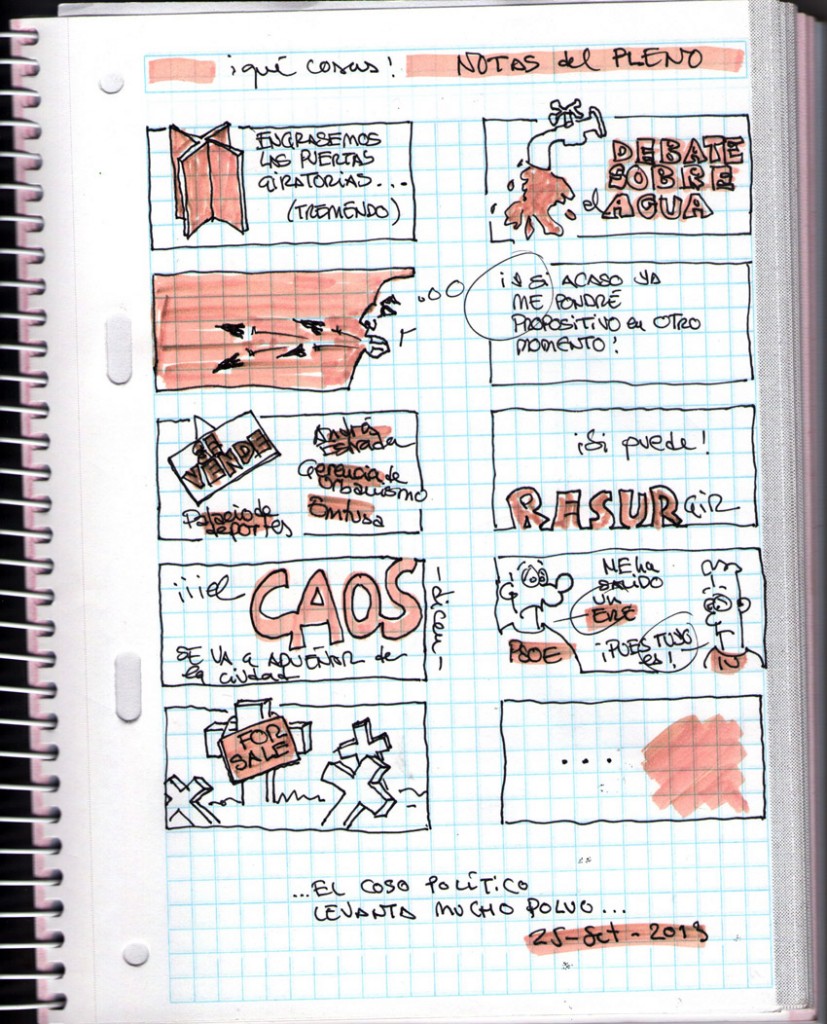 ¡qué cosas! NOTAS del PLENO
ENGRASEMOS
LAS PUERTAS
GIRATORIAS...
(TREMENDO)
DEBATE
SOBRE
el AGUA
¡Y Si ACASO YA
ME PONDRÉ
PROPOSITIVO en OTRO
MOMENTO!
SE
VENDE
Palacio de
deportes
Andrés
Estrada
Gerencia de
Urbanismo
Emtusa
¡Si puede!
RESURGIR
¡¡¡el
CAOS
-dicen-
SE VA a ADUEÑAR de
la ciudad
ME ha
SALIDO
UN
ERE
PSOE
¡PUES TUYO
es!
IU
FOR
SALE
...
...EL COSO POLÍTICO
LEVANTA MUCHO POLVO...
25-Set-2013